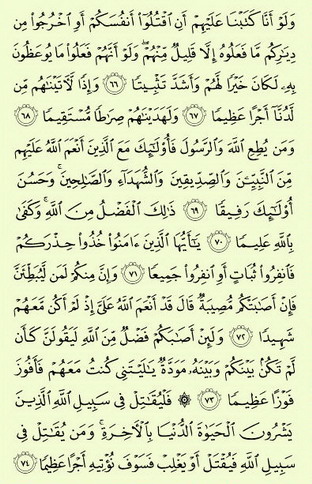 وَلَوْ أَنَّا كَتَبْنَا عَلَيْهِمْ أَنِ ٱقْتُلُوٓا۟ أَنفُسَكُمْ أَوِ ٱخْرُجُوا۟ مِن
دِيَـٰرِكُم مَّا فَعَلُوهُ إِلَّا قَلِيلٌ مِّنْهُمْ ۖ وَلَوْ أَنَّهُمْ فَعَلُوا۟ مَا يُوعَظُونَ
بِهِۦ لَكَانَ خَيْرًا لَّهُمْ وَأَشَدَّ تَثْبِيتًا ٦٦ وَإِذًا لَّـَٔاتَيْنَـٰهُم مِّن
لَّدُنَّآ أَجْرًا عَظِيمًا ٦٧ وَلَهَدَيْنَـٰهُمْ صِرَٰطًا مُّسْتَقِيمًا ٦٨
وَمَن يُطِعِ ٱللَّهَ وَٱلرَّسُولَ فَأُو۟لَـٰٓئِكَ مَعَ ٱلَّذِينَ أَنْعَمَ ٱللَّهُ عَلَيْهِم
مِّنَ ٱلنَّبِيِّـۧنَ وَٱلصِّدِّيقِينَ وَٱلشُّهَدَآءِ وَٱلصَّـٰلِحِينَ ۚ وَحَسُنَ
أُو۟لَـٰٓئِكَ رَفِيقًا ٦٩ ذَٰلِكَ ٱلْفَضْلُ مِنَ ٱللَّهِ ۚ وَكَفَىٰ
بِٱللَّهِ عَلِيمًا ٧٠ يَـٰٓأَيُّهَا ٱلَّذِينَ ءَامَنُوا۟ خُذُوا۟ حِذْرَكُمْ
فَٱنفِرُوا۟ ثُبَاتٍ أَوِ ٱنفِرُوا۟ جَمِيعًا ٧١ وَإِنَّ مِنكُمْ لَمَن لَّيُبَطِّئَنَّ
فَإِنْ أَصَـٰبَتْكُم مُّصِيبَةٌ قَالَ قَدْ أَنْعَمَ ٱللَّهُ عَلَىَّ إِذْ لَمْ أَكُن مَّعَهُمْ
شَهِيدًا ٧٢ وَلَئِنْ أَصَـٰبَكُمْ فَضْلٌ مِّنَ ٱللَّهِ لَيَقُولَنَّ كَأَن
لَّمْ تَكُنۢ بَيْنَكُمْ وَبَيْنَهُۥ مَوَدَّةٌ يَـٰلَيْتَنِى كُنتُ مَعَهُمْ فَأَفُوزَ
فَوْزًا عَظِيمًا ٧٣ ۞ فَلْيُقَـٰتِلْ فِى سَبِيلِ ٱللَّهِ ٱلَّذِينَ
يَشْرُونَ ٱلْحَيَوٰةَ ٱلدُّنْيَا بِٱلْـَٔاخِرَةِ ۚ وَمَن يُقَـٰتِلْ فِى
سَبِيلِ ٱللَّهِ فَيُقْتَلْ أَوْ يَغْلِبْ فَسَوْفَ نُؤْتِيهِ أَجْرًا عَظِيمًا ٧٤